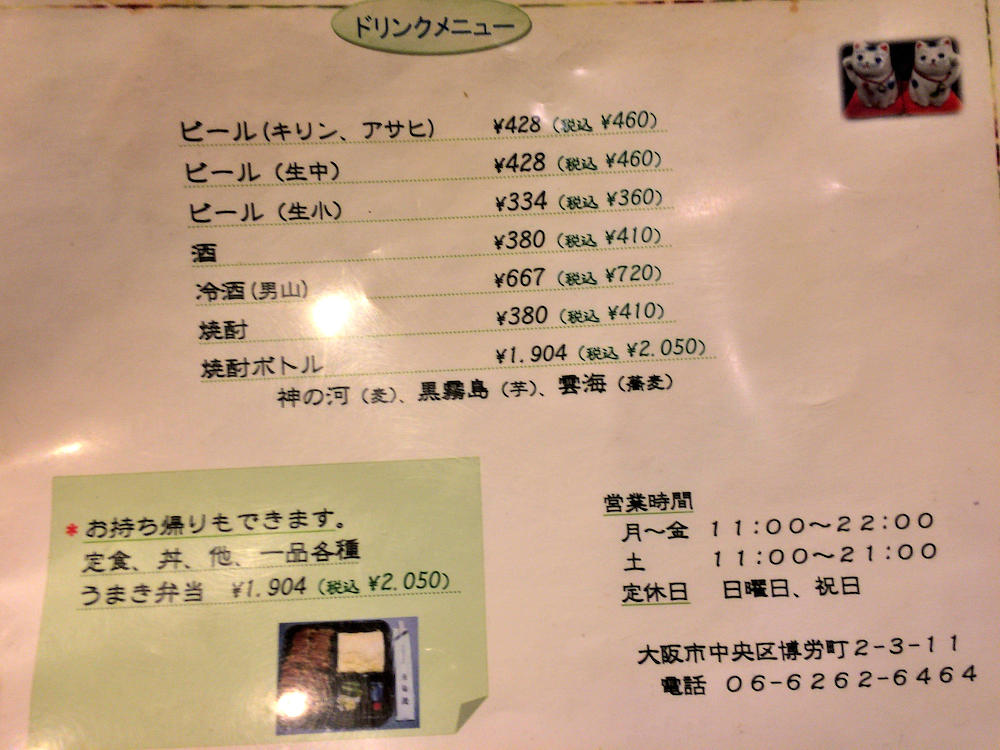 ドリンクメニュー
ビール(キリン、アサヒ) ¥428 (税込 ¥460)
ビール (生中) ¥428 (税込 ¥460)
ビール (生小) ¥334 (税込 ¥360)
酒 ¥380 (税込 ¥410)
冷酒(男山) ¥667 (税込 ¥720)
焼酎 ¥380 (税込 ¥410)
焼酎ボトル ¥1.904 (税込 ¥2.050)
神の河 (麦)、黒霧島 (芋)、雲海 (蕎麦)
*お持ち帰りもできます。
定食、丼、他、一品各種
うまき弁当 ¥1.904 (税込 ¥2.050)
営業時間
月～金 11:00～22:00
土 11:00～21:00
定休日 日曜日、祝日
大阪市中央区博労町2-3-11
電話 06-6262-6464